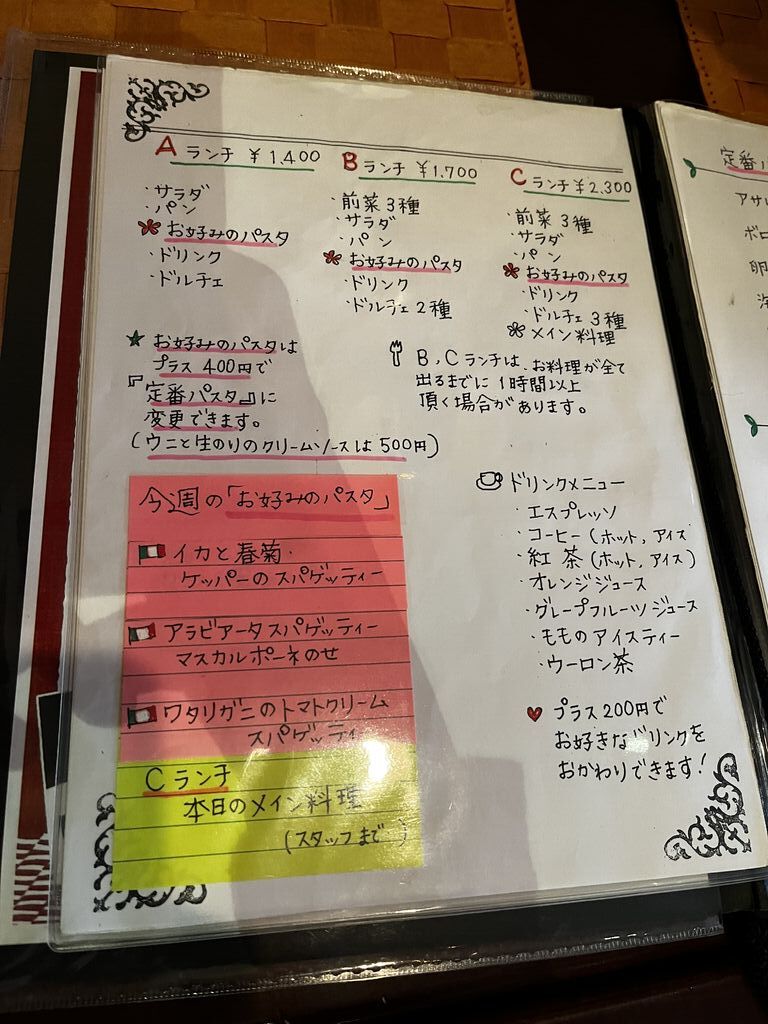 A ランチ ￥1,400
・サラダ
・パン
お好みのパスタ
・ドリンク
・ドルチェ
B ランチ ￥1,700
・前菜3種
・サラダ
・パン
お好みのパスタ
・ドリンク
・ドルチェ2種
C ランチ ￥2,300
・前菜3種
・サラダ
・パン
お好みのパスタ
・ドリンク
・ドルチェ3種
メイン料理
★ お好みのパスタは
プラス400円で
『定番パスタ』に
変更できます。
(ウニと生のりのクリームソースは500円)
B,Cランチは、お料理が全て
出るまでに1時間以上
頂く場合があります。
今週の「お好みのパスタ」
イカと春菊・
ケッパーのスパゲッティー
アラビアータスパゲッティー
マスカルポーネのせ
ワタリガニのトマトクリーム
スパゲッティ
Cランチ
本日のメイン料理
(スタッフまで)
ドリンクメニュー
・エスプレッソ
・コーヒー(ホット,アイス
・紅茶(ホット,アイス)
・オレンジジュース
・グレープフルーツジュース
・ももアイスティー
・ウーロン茶
♥ プラス200円で
お好きなドリンクを
おかわりできます!
定番
アサ
ボロ
卵